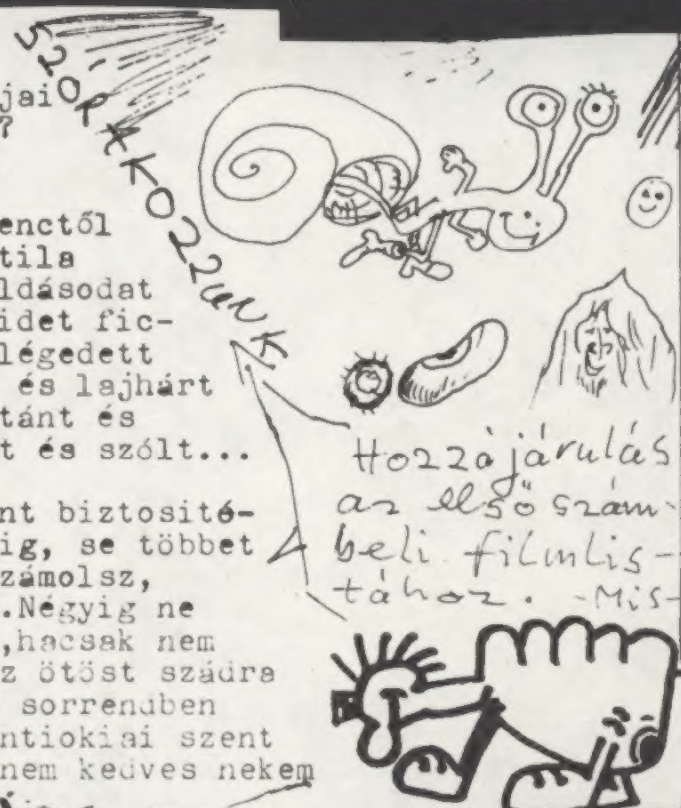 SZÓRAKOZZUNK
jai
?
enctől
tila
ldásodat
idet fic-
légedett
és lajhárt
tánt és
t és szólt...
nt biztosité-
ig, se többet
zámolsz,
.Négyig ne
,hacsak nem
z ötöst szádra
sorrendben
ntiokiai szent
nem kedves nekem
Hozzájárulás
az első szám-
beli filmlis-
tához. -Mis-